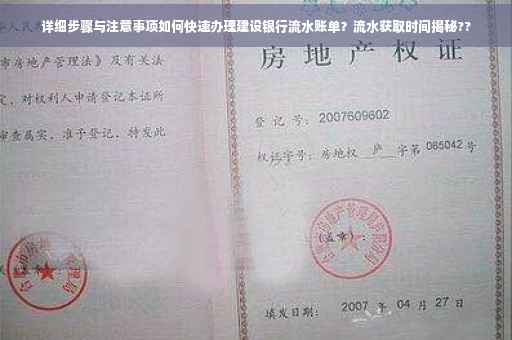 详细步骤与注意事项如何快速办理建设银行流水账单？流水获取时间揭秘??
市房地产管理法》及有关法
定，对权利人申请登记本证所
审查属实，准予登记，特发此
房地产权证
登记号：2007609602
权证字号：房地权 庐 字第 065042 号
(盖章)：
填发日期： 2007 年 04 月 27 日